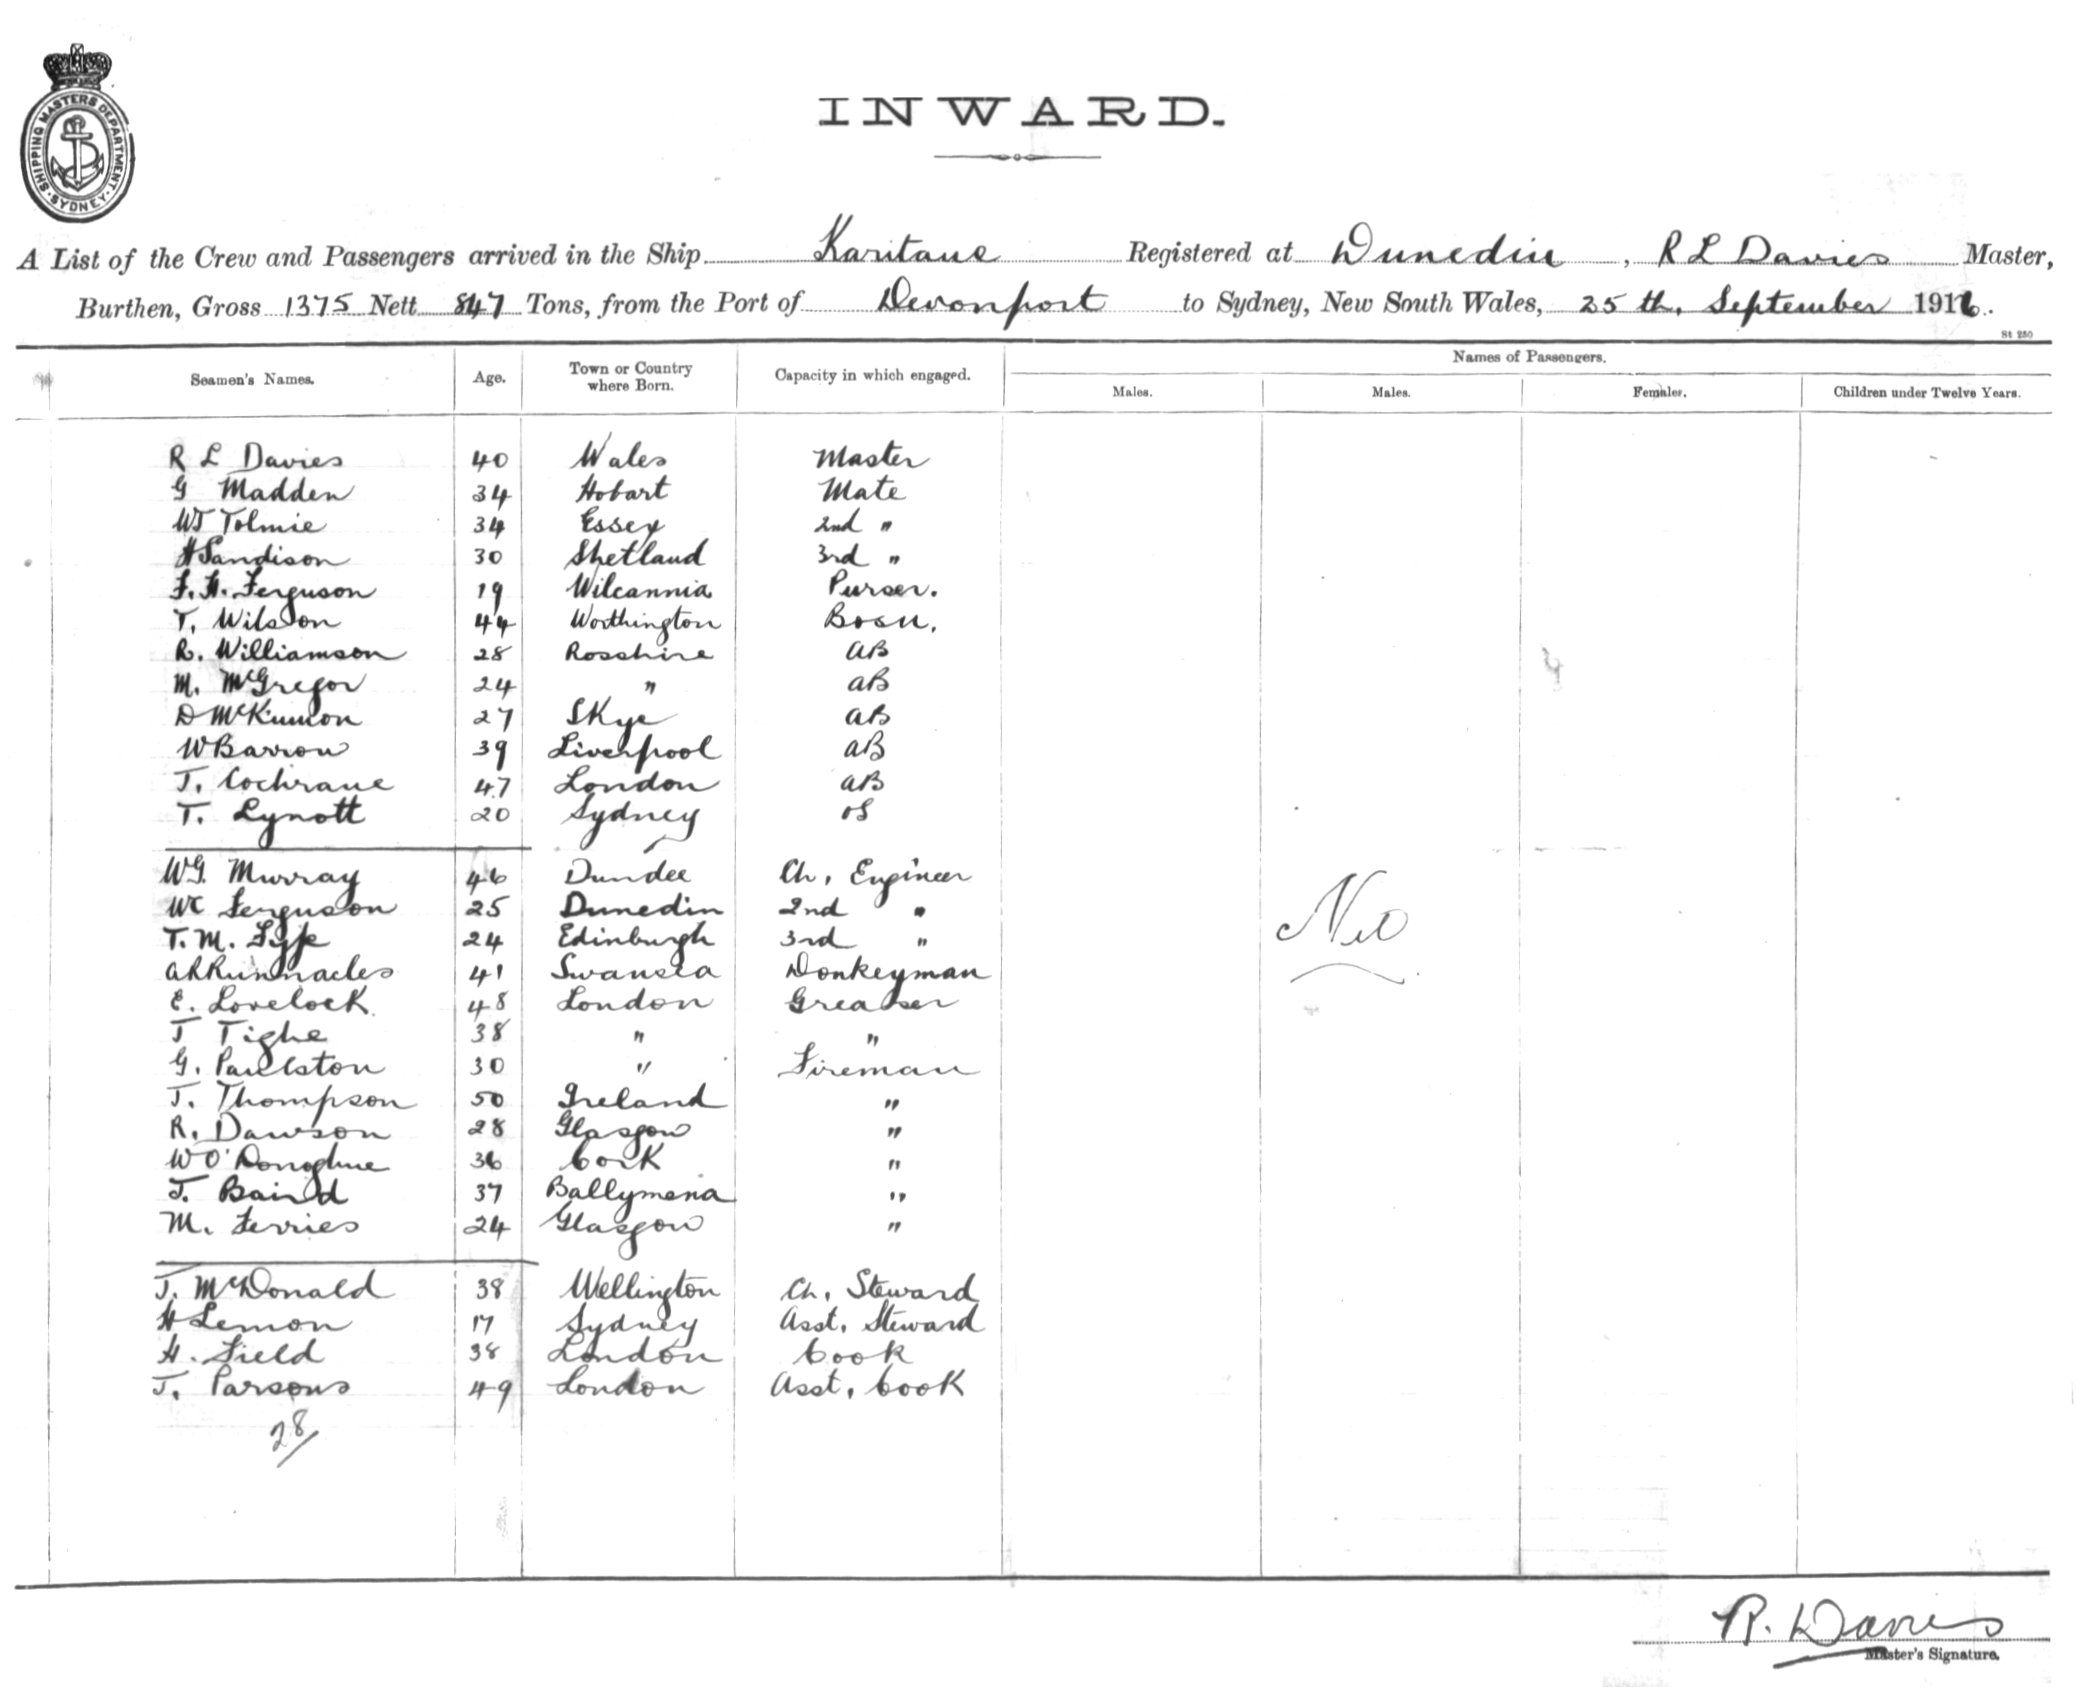 SHIPPING MASTERS DEPARTMENT. SYDNEY
INWARD.
A List of the Crew and Passengers arrived in the Ship Karitane Registered at Dunedin, R L Davies Master,
Burthen, Gross 1375 Nett 847 Tons, from the Port of Devonport to Sydney, New South Wales, 25th. September 1916.
St 250
Seamen's Names. Age. Town or Country where Born. Capacity in which engaged. Names of Passengers.
Males. Males. Females. Children under Twelve Years.
R L Davies 40 Wales Master
G Madden 34 Hobart Mate
WJ Tolmie 34 Essex 2nd "
H Sandison 30 Shetland 3rd "
F. H. Ferguson 19 Wilcannia Purser.
T. Wilson 44 Worthington Bosn.
R. Williamson 28 Rosshire AB
M. McGregor 24 " AB
D McKinnon 27 Skye AB
W Barron 39 Liverpool AB
J. Cochrane 47 London AB
T. Lynott 20 Sydney OS
WG. Murray 46 Dundee Ch. Engineer
WC Ferguson 25 Dunedin 2nd "
T. M. Fyfe 24 Edinburgh 3rd "
Nil
A R Runnacles 41 Swansea Donkeyman
E. Lovelock 48 London Greaser
J Tighe 38 " "
G. Paulston 30 " Fireman
J. Thompson 50 Ireland "
R. Dawson 28 Glasgow "
W O'Donoghue 36 Cork "
J. Baird 37 Ballymena "
M. Ferries 24 Glasgow "
J. McDonald 38 Wellington Ch. Steward
H Lemon 17 Sydney Asst. Steward
H. Field 38 London Cook
J. Parsons 49 London Asst. Cook
28/
R. Davies
Master's Signature.